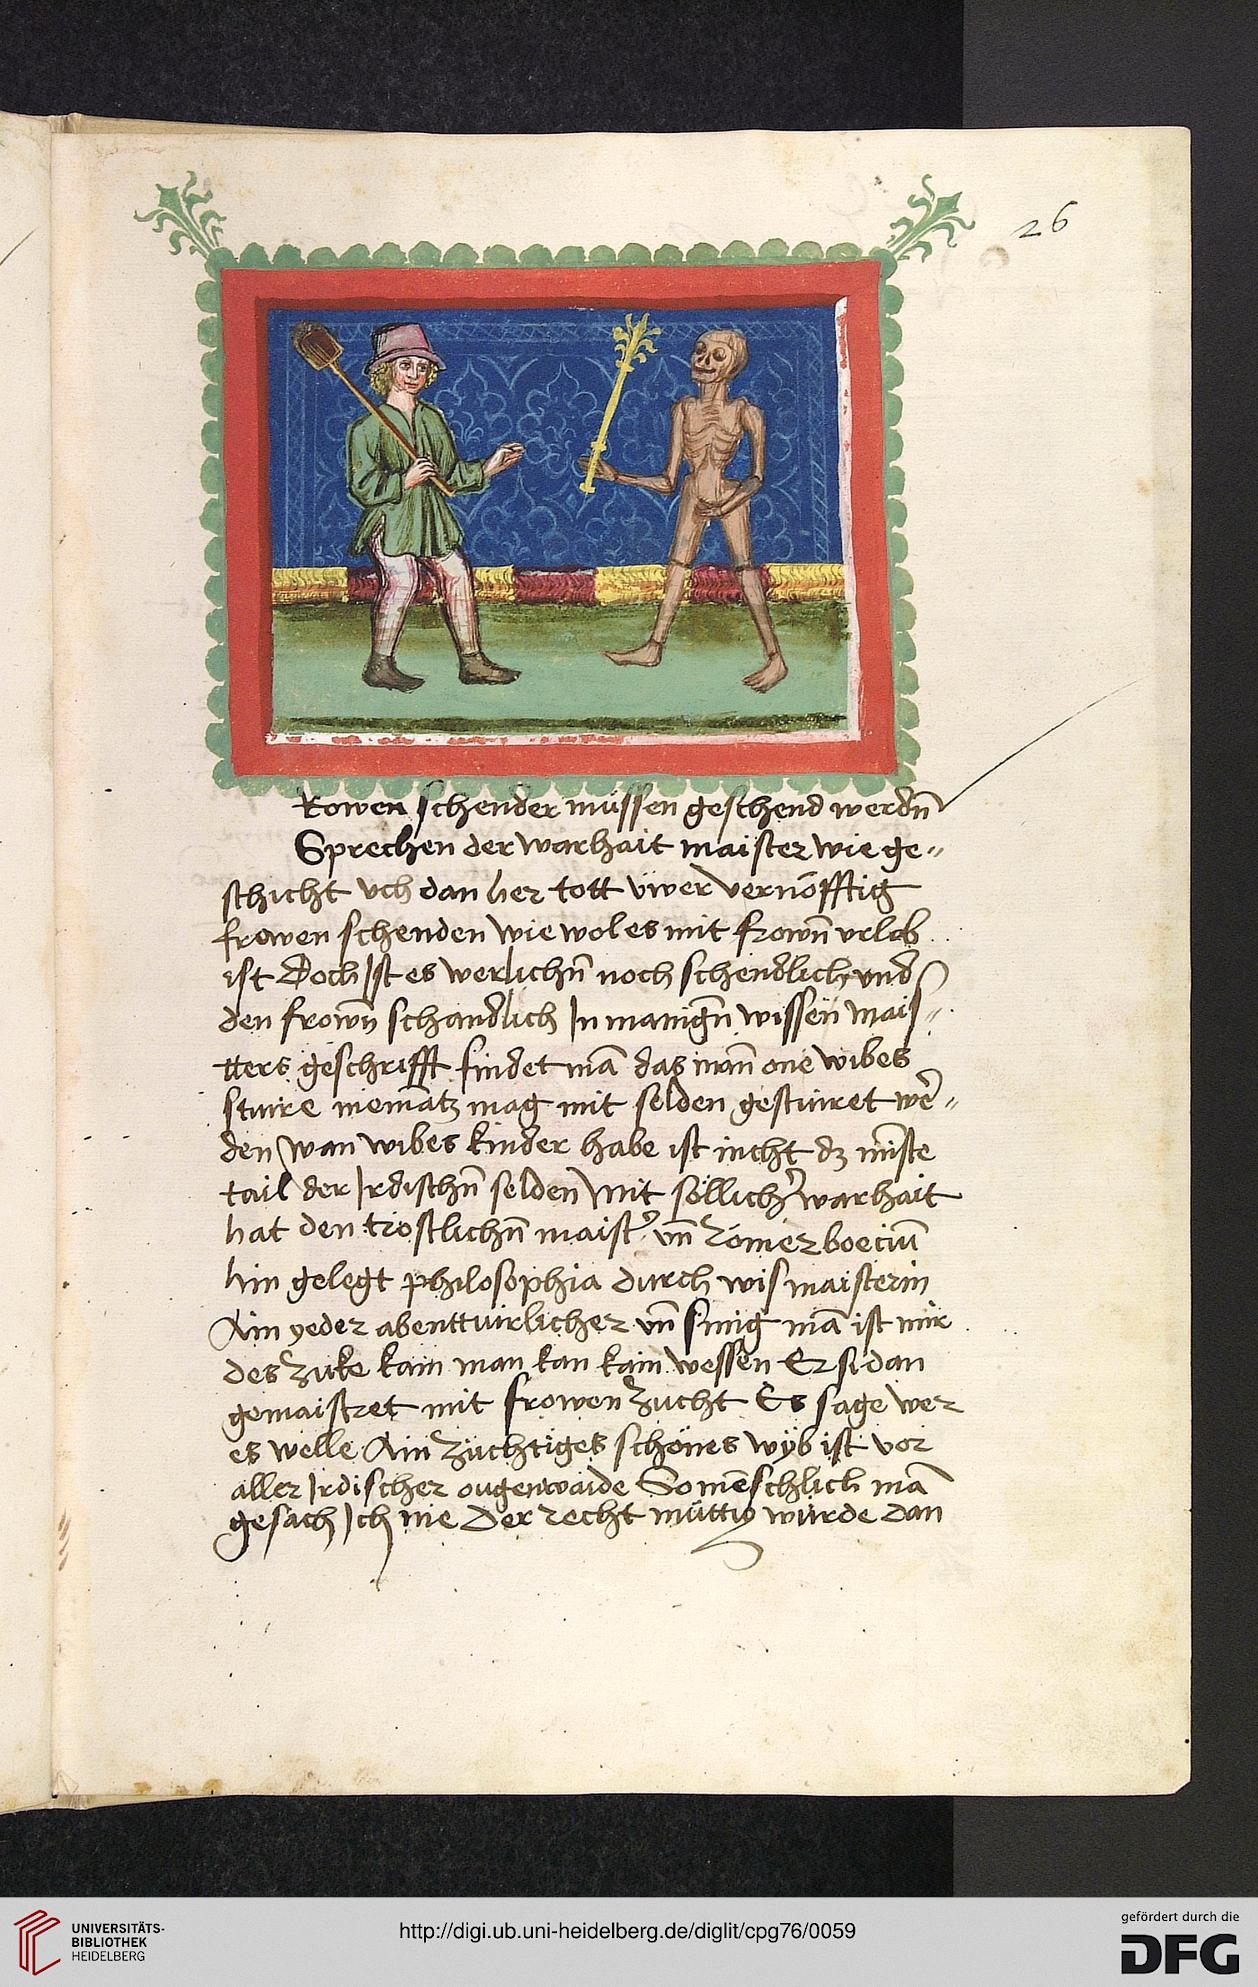 26
Rowen schender müssen geschend werdn̄
Sprechen der warhait maister wie ge„
schicht vch dan her tott üwer vernöfftig
frowen schenden wie wol es mit frown̄ vrlob
ist Doch Ist es werlichn̄ noch schendlich vnd
den frown̄ schandlich In manign̄ wissen mais„
tters geschrifft findet mā das man one wibes
stuire niemātz mag mit selden gestuiret wer„
den wan wibes kinder habe ist nicht dz minste
tail der Irdischn̄ selden mit söllicher warhait
hat den trostlichn̄ maister vn̄ Römer boeciū
hin gelegt philosophia durch wis maisterin
Ain yeder abenttuirlicher vn̄ sinnig mā ist mir
des zuke kain man kan kain wessen Er si dan
gemaistret mit frowen zucht Es sage wer
es welle Ain züchtiges schönes wyb ist vor
aller Irdischer ougenwaide So menschlich mā
gesach Ich nie Der recht müttig würde dan
UNIVERSITÄTS-
BIBLIOTHEK
HEIDELBERG
http://digi.ub.uni-heidelberg.de/diglit/cpg76/0059
gefördert durch die
DFG